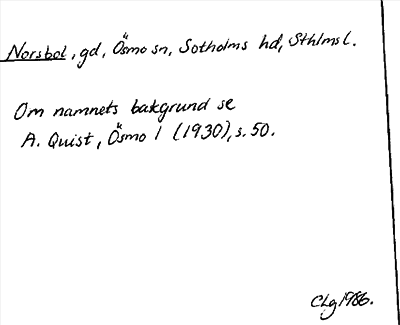 Norsbol, gd, Ösmo sn, Sotholms hd, Sthlms l.
Om namnets bakgrund se
A. Quist, Ösmo 1 (1930), s. 50.
CLg 1986.